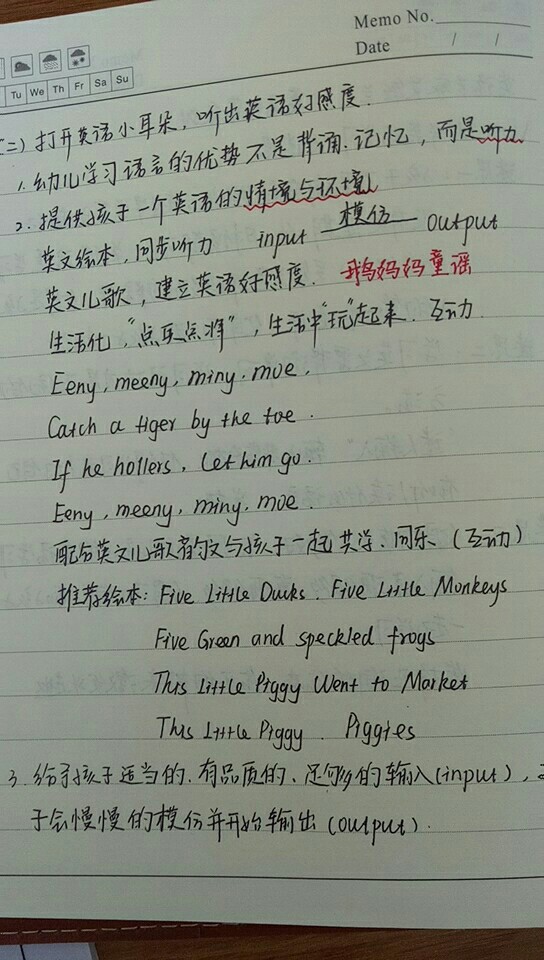 Memo No.
Date / /
Tu We Th Fr Sa Su
(二) 打开英语小耳朵，听出英语好感度．
1. 幼儿学习语言的优势不是背诵．记忆，而是听力
2. 提供孩子一个英语的情境与环境
英文绘本，同步听力 input 模仿 output
英文儿歌，建立英语好感度． 鹅妈妈童谣
生活化，"点兵点将"，生活中"玩"起来．互动
Eeny, meeny, miny, moe,
Catch a tiger by the toe.
If he hollers, let him go.
Eeny, meeny, miny, moe.
配合英文儿歌韵文与孩子一起共学、同乐（互动）
推荐绘本: Five Little Ducks. Five Little Monkeys
Five Green and speckled frogs
This Little Piggy Went to Market
This Little Piggy. Piggies
3. 给予孩子适当的．有品质的、足够的输入(input)，
子会慢慢的模仿并开始输出 (output).